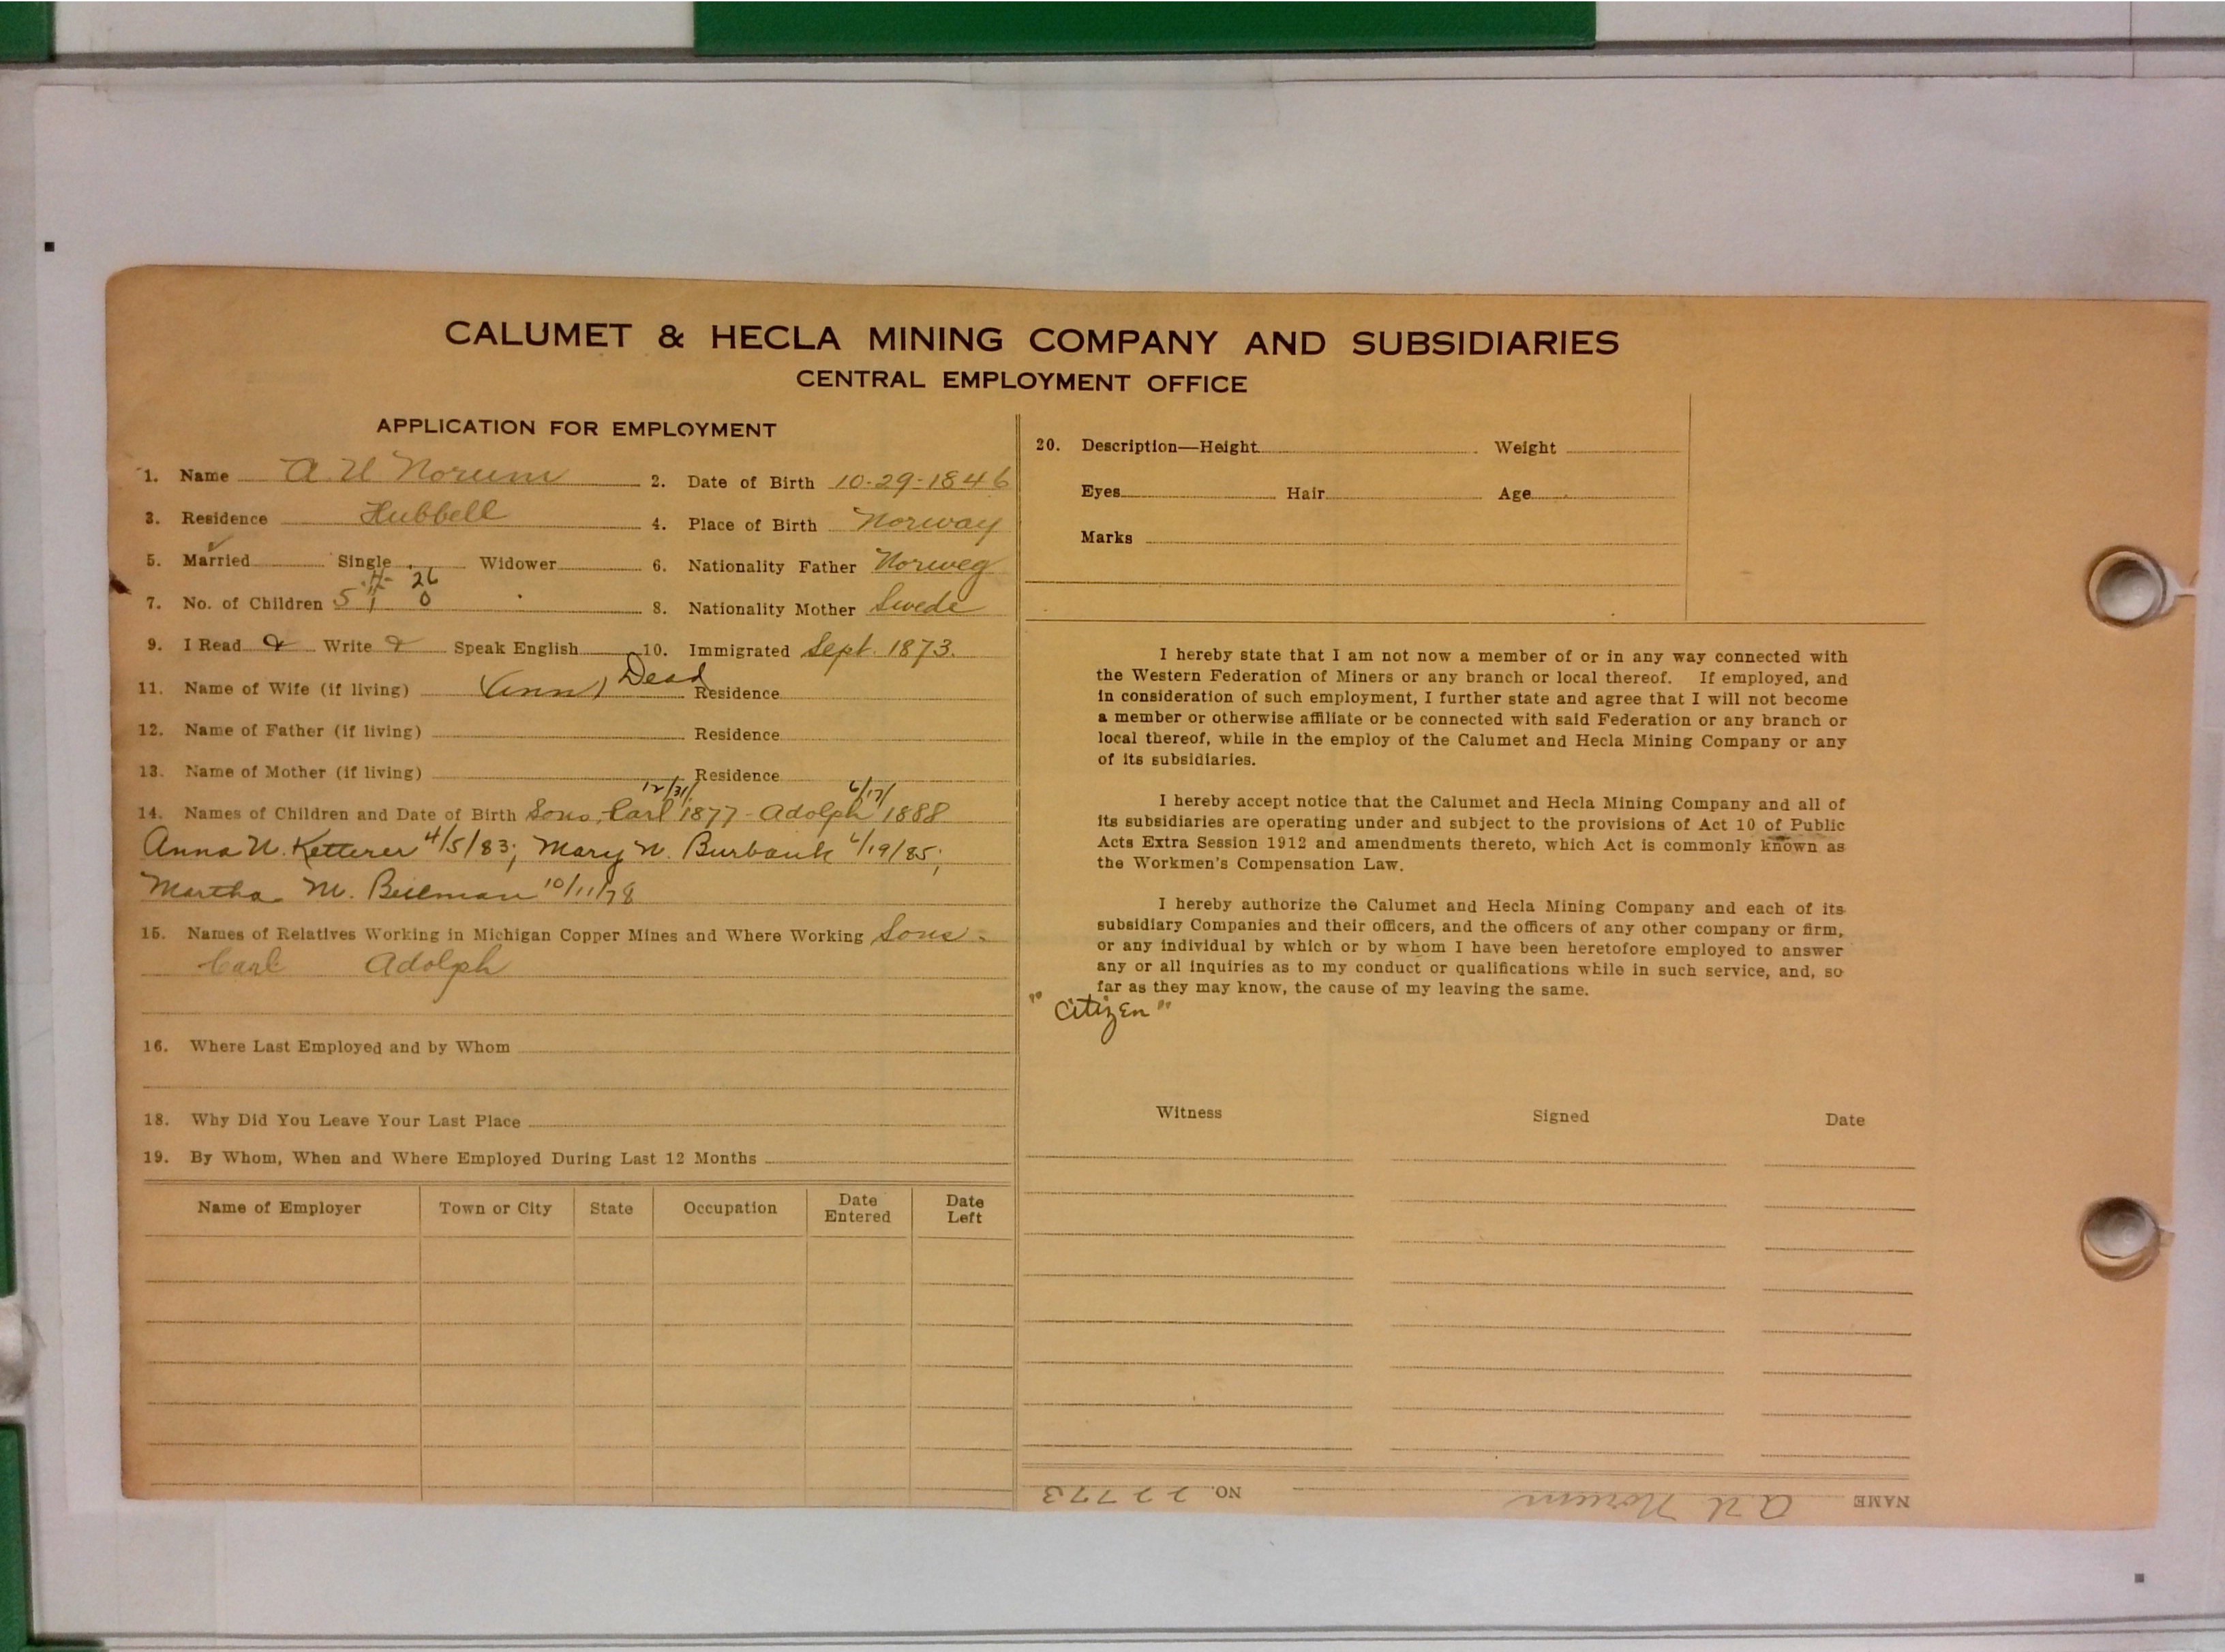 CALUMET & HECLA MINING COMPANY AND SUBSIDIARIES
CENTRAL EMPLOYMENT OFFICE
APPLICATION FOR EMPLOYMENT
1. Name A. U Norum 2. Date of Birth 10-29-1846
3. Residence Hubbell 4. Place of Birth Norway
5. Married ✓ Single Widower 6. Nationality Father Norweg
7. No. of Children 5 1 26 0 8. Nationality Mother Swede
9. I Read & Write & Speak English 10. Immigrated Sept. 1873.
11. Name of Wife (if living) (Ann) Dead Residence
12. Name of Father (if living) Residence
13. Name of Mother (if living) Residence
14. Names of Children and Date of Birth Sons, Carl 12/31/1877 - Adolph 6/17/1888
Anna N. Ketterer 4/5/83; Mary N. Burbank 6/19/85;
Martha M. 10/11/78
15. Names of Relatives Working in Michigan Copper Mines and Where Working Sons -
Carl Adolph
16. Where Last Employed and by Whom
18. Why Did You Leave Your Last Place
19. By Whom, When and Where Employed During Last 12 Months
Name of Employer Town or City State Occupation Date Entered Date Left
20. Description—Height Weight
Eyes Hair Age
Marks
I hereby state that I am not now a member of or in any way connected with
the Western Federation of Miners or any branch or local thereof. If employed, and
in consideration of such employment, I further state and agree that I will not become
a member or otherwise affiliate or be connected with said Federation or any branch or
local thereof, while in the employ of the Calumet and Hecla Mining Company or any
of its subsidiaries.
I hereby accept notice that the Calumet and Hecla Mining Company and all of
its subsidiaries are operating under and subject to the provisions of Act 10 of Public
Acts Extra Session 1912 and amendments thereto, which Act is commonly known as
the Workmen's Compensation Law.
I hereby authorize the Calumet and Hecla Mining Company and each of its
subsidiary Companies and their officers, and the officers of any other company or firm,
or any individual by which or by whom I have been heretofore employed to answer
any or all inquiries as to my conduct or qualifications while in such service, and, so
far as they may know, the cause of my leaving the same.
"Citizen"
Witness Signed Date
NAME A U Norum NO. 22773